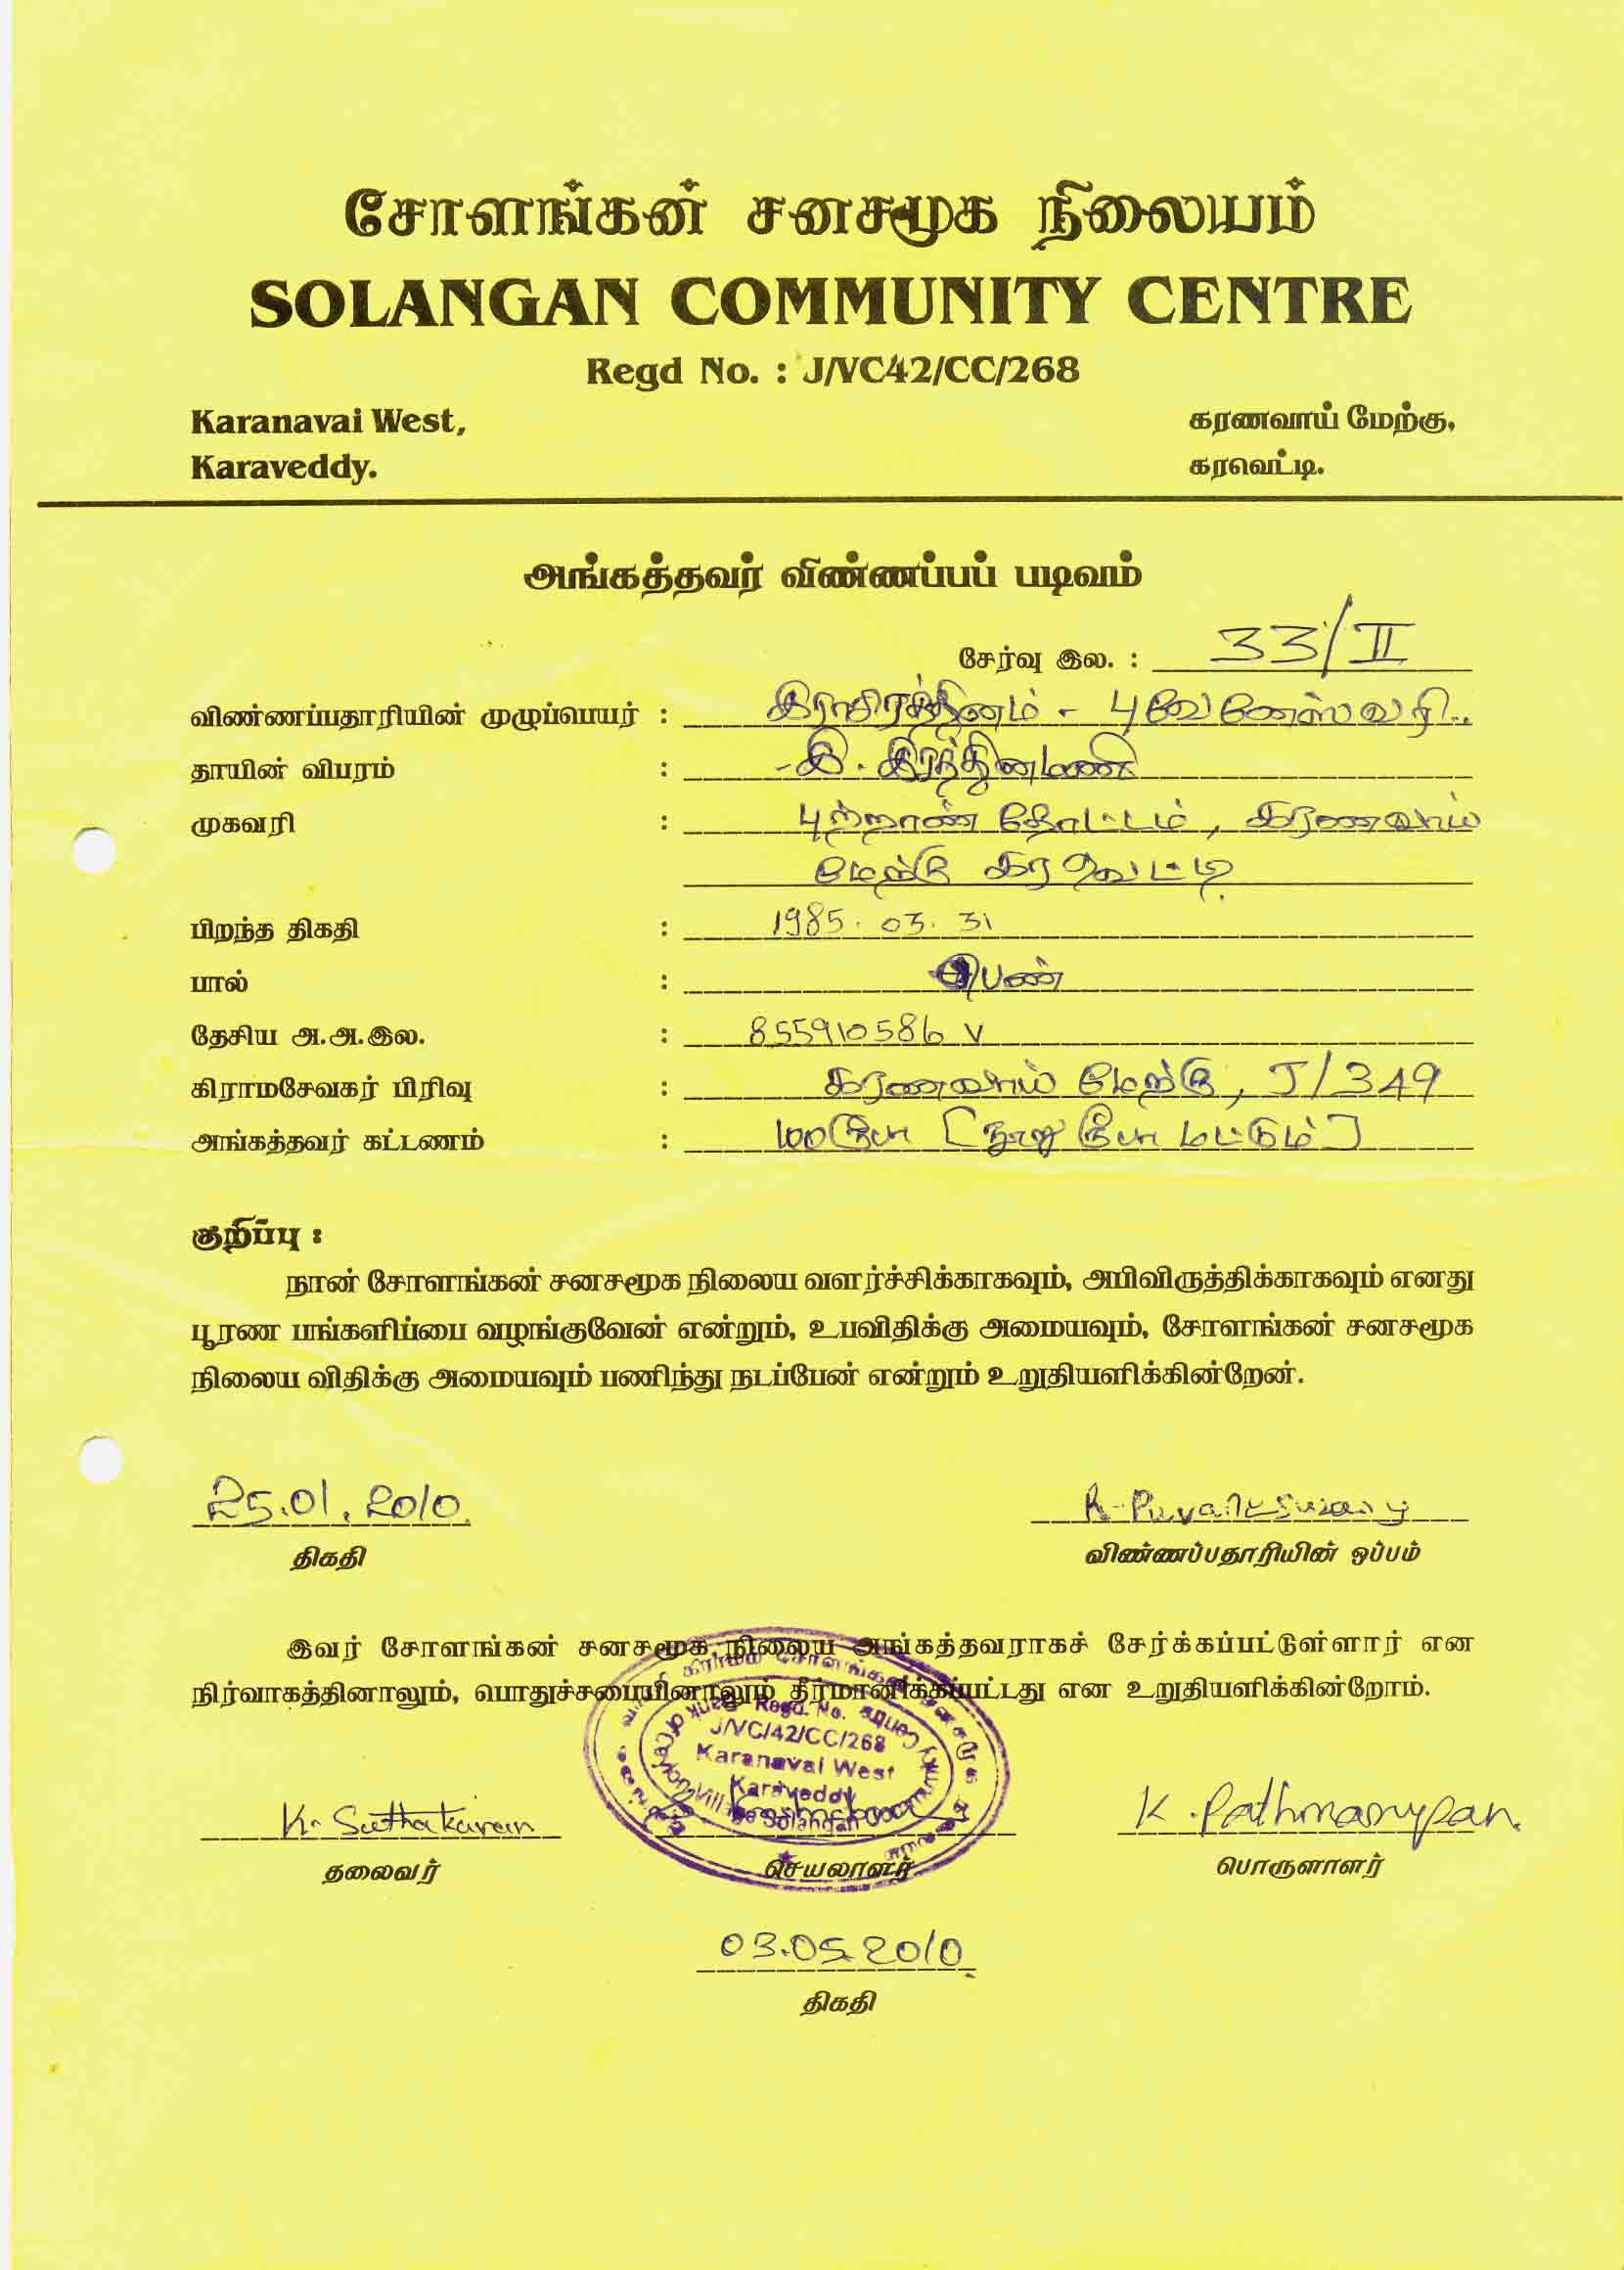 சோளங்கன் சனசமூக நிலையம்
SOLANGAN COMMUNITY CENTRE
Regd No. : J/VC42/CC/268
Karanavai West,
Karaveddy.
கரணவாய் மேற்கு,
கரவெட்டி.
அங்கத்தவர் விண்ணப்பப் படிவம்
சேர்வு இல. : 33/II
விண்ணப்பதாரியின் முழுப்பெயர் : இராசிரத்தினம் - புவனேஸ்வரி..
தாயின் விபரம் : - இ. இரத்தினமணி
முகவரி : புற்றாண் தோட்டம், கரணவாய்
மேற்கு கரவெட்டி
பிறந்த திகதி : 1985. 03. 31
பால் : பெண்
தேசிய அ.அ.இல. : 855910586 V
கிராமசேவகர் பிரிவு : கரணவாய் மேற்கு, J/349
அங்கத்தவர் கட்டணம் : 100 ரூபா [நூறு ரூபா மட்டும்]
குறிப்பு :
நான் சோளங்கன் சனசமூக நிலைய வளர்ச்சிக்காகவும், அபிவிருத்திக்காகவும் எனது
பூரண பங்களிப்பை வழங்குவேன் என்றும், உபவிதிக்கு அமையவும், சோளங்கன் சனசமூக
நிலைய விதிக்கு அமையவும் பணிந்து நடப்பேன் என்றும் உறுதியளிக்கின்றேன்.
25.01.2010.
திகதி
R. Puvaneswary
விண்ணப்பதாரியின் ஒப்பம்
இவர் சோளங்கன் சனசமூக நிலைய அங்கத்தவராகச் சேர்க்கப்பட்டுள்ளார் என
நிர்வாகத்தினாலும், பொதுச்சபையினாலும் தீர்மானிக்கப்பட்டது என உறுதியளிக்கின்றோம்.
Regd. No.
J/VC/42/CC/268
Karanavai West
Karaveddy
K. Suthakaran
தலைவர்
செயலாளர்
K. Pathmanypan.
பொருளாளர்
03.05.2010.
திகதி